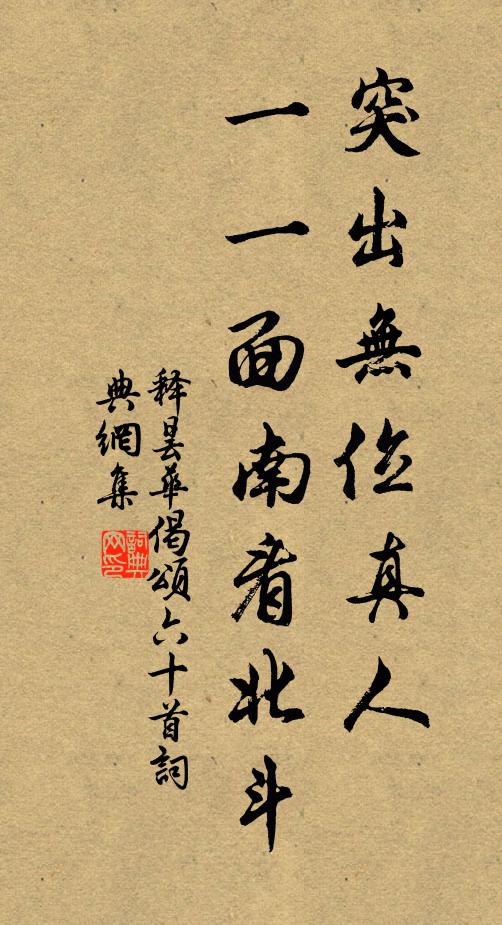 突出無位真人
一一面南看北斗
釋曇華偈頌六十首詞
典網集
詞典
网印